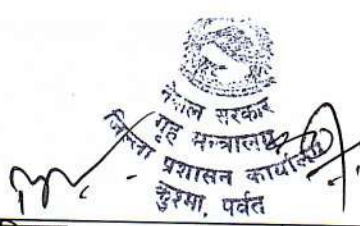 नेपाल सरकार
गृह मन्त्रालय
जिल्ला प्रशासन कार्यालय
कुश्मा, पर्वत